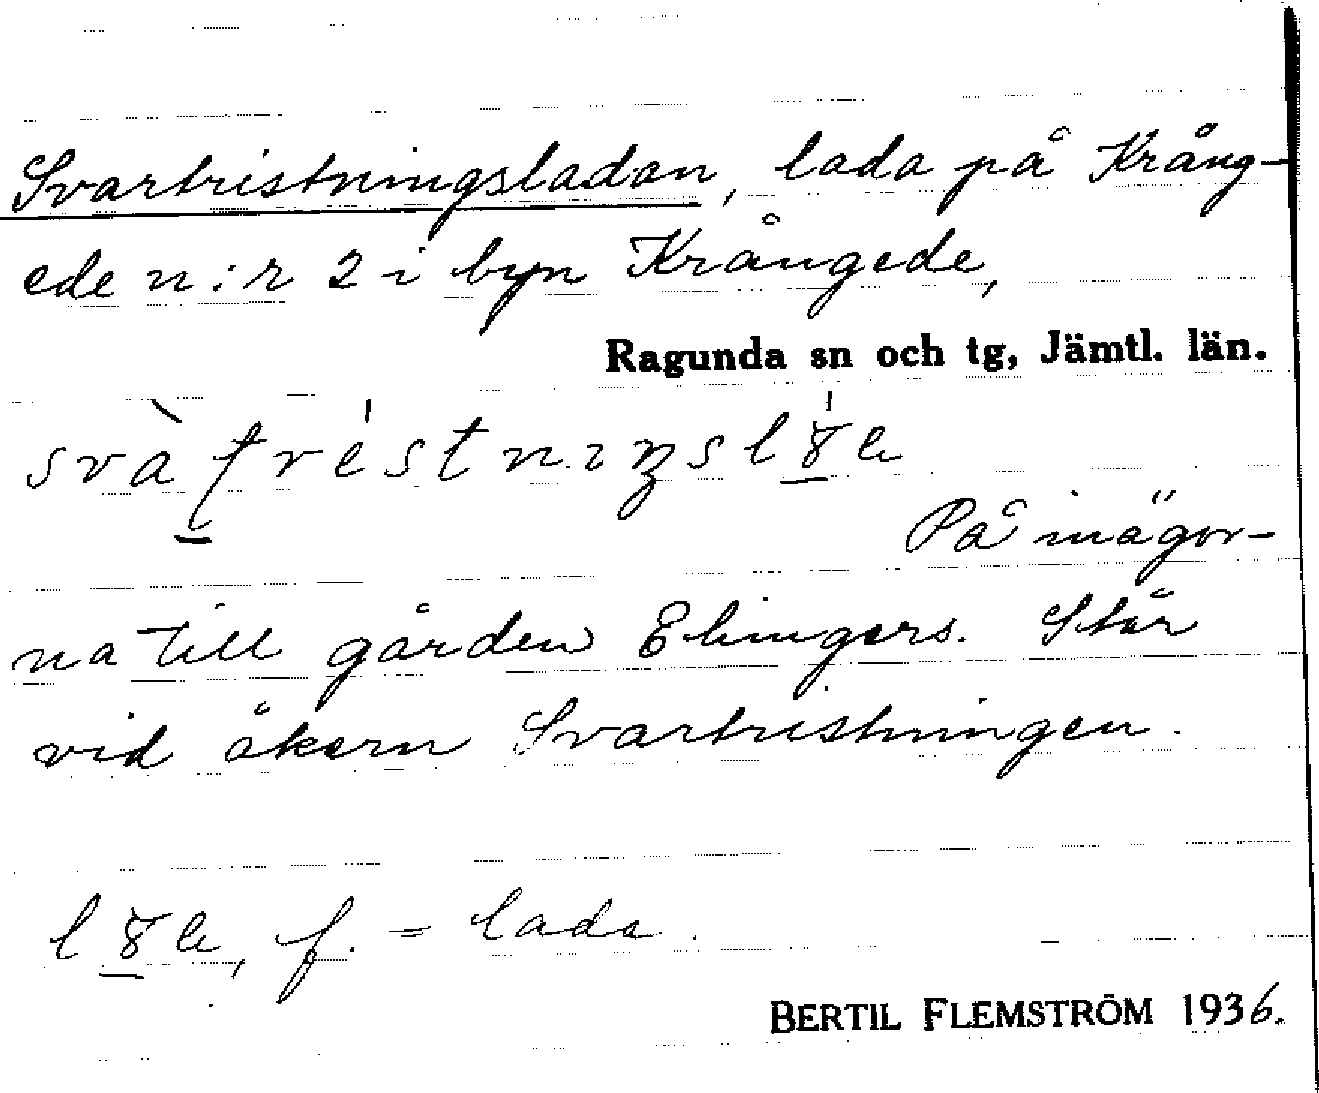 Svartristningsladan, lada på Krång-
ede n:r 2 i byn Krångede,
Ragunda sn och tg, Jämtl. län.
På inägor-
na till gården Elingers. Står
vid åkern Svartristningen.
f. = lada.
BERTIL FLEMSTRÖM 1936.